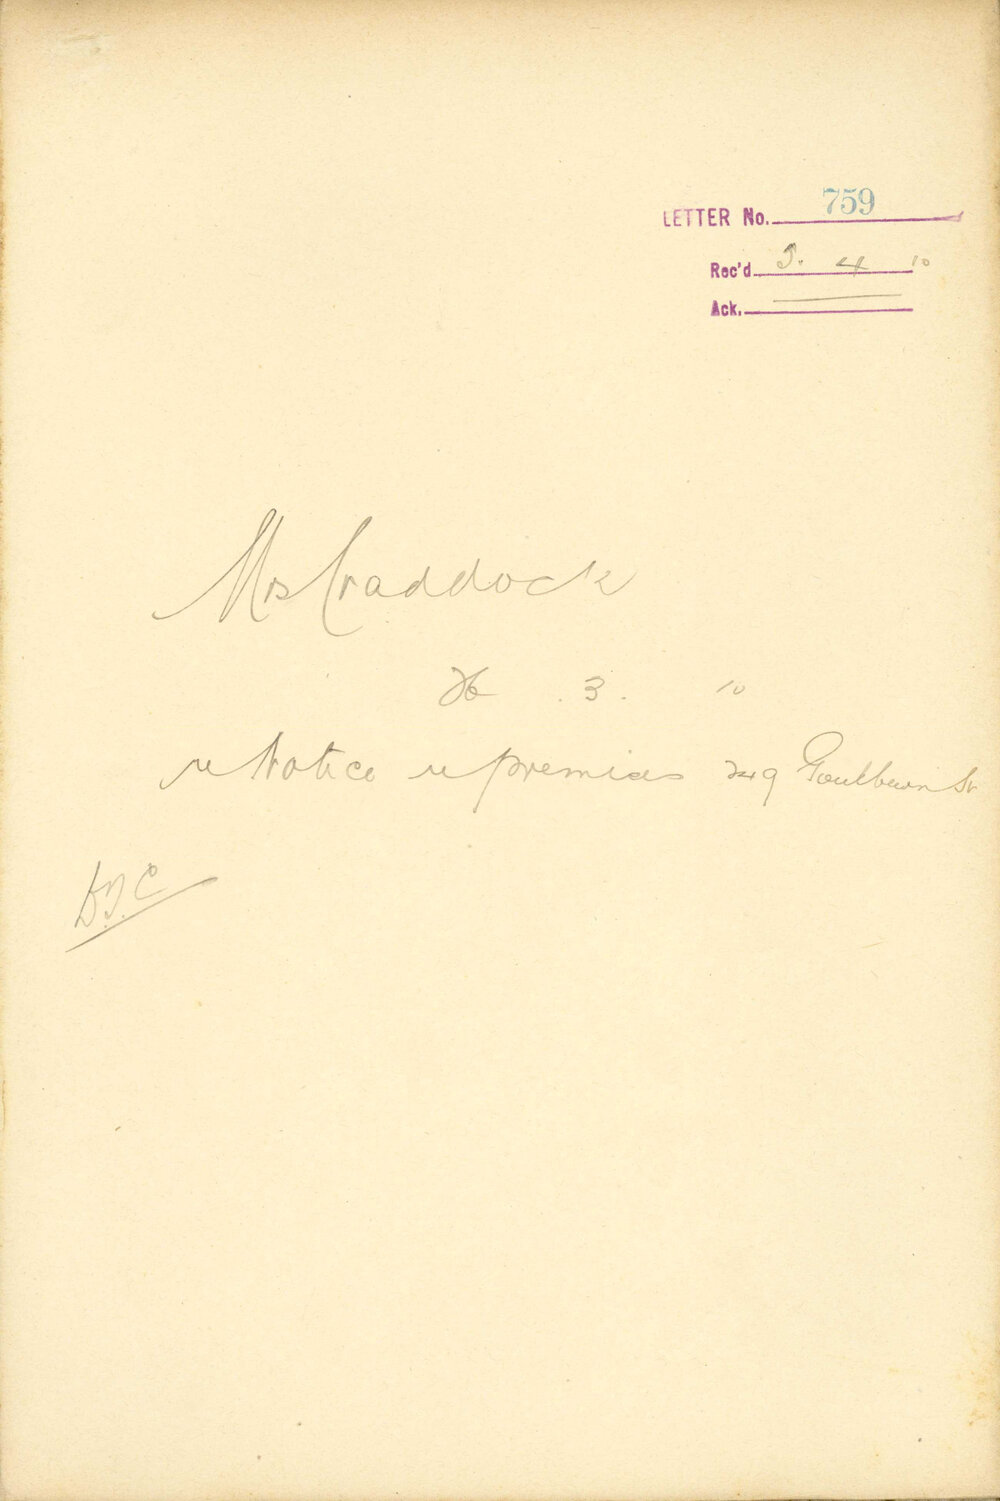 LETTER No. 759
Rec'd 5. 4 10
Ack.
Mrs Craddock
26 . 3 . 10
re Notice re premises 249 Goulburn St